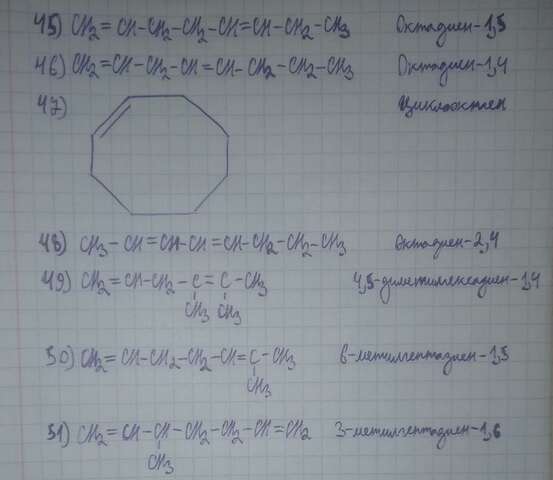 45) CH2=CH-CH2-CH2-CH=CH-CH2-CH3 Октадиен-1,5
46) CH2=CH-CH2-CH=CH-CH2-CH2-CH3 Октадиен-1,4
47) Циклооктен
48) CH3-CH=CH-CH=CH-CH2-CH2-CH3 Октадиен-2,4
49) CH2=CH-CH2-C=C-CH3 4,5-диметилгексадиен-1,4
CH3 CH3
50) CH2=CH-CH2-CH2-CH=C-CH3 6-метилгептадиен-1,5
CH3
51) CH2=CH-CH-CH2-CH2-CH=CH2 3-метилгептадиен-1,6
CH3